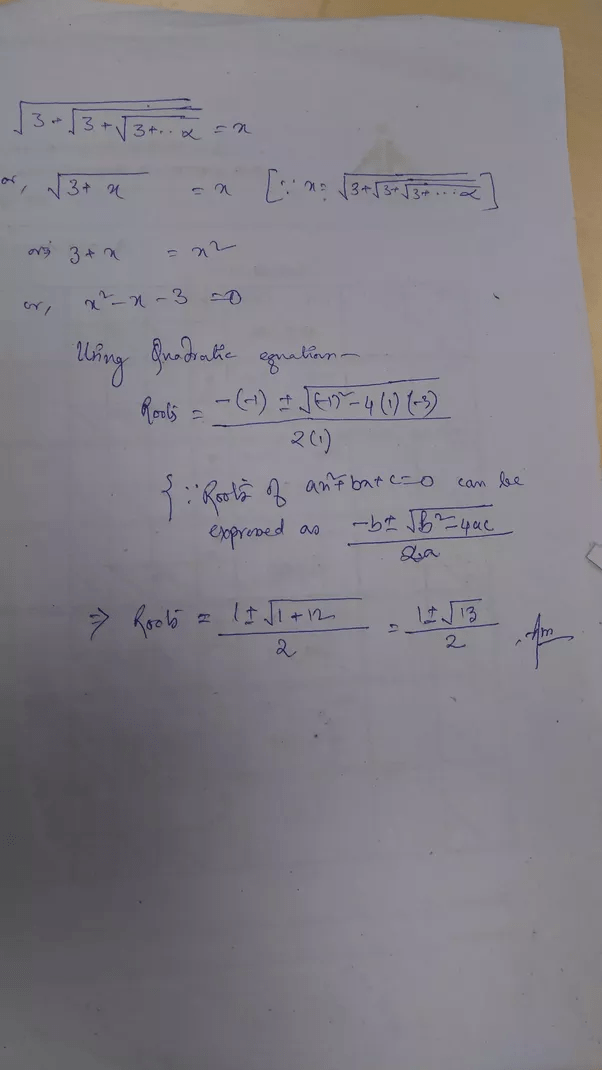 √(3+√(3+√(3+...α))) = x
or, √(3+x) = x [∵ x = √(3+√(3+√(3+...α)))]
or, 3+x = x²
or, x²-x-3 =0
Using Quadratic equation-
Roots = (-(-1) ± √((-1)²-4(1)(-3)))/(2(1))
{∵ Roots of ax²+bx+c=0 can be
expressed as (-b±√(b²-4ac))/(2a)
⇒ Roots = (1±√(1+12))/2 = (1±√13)/2 . Ans